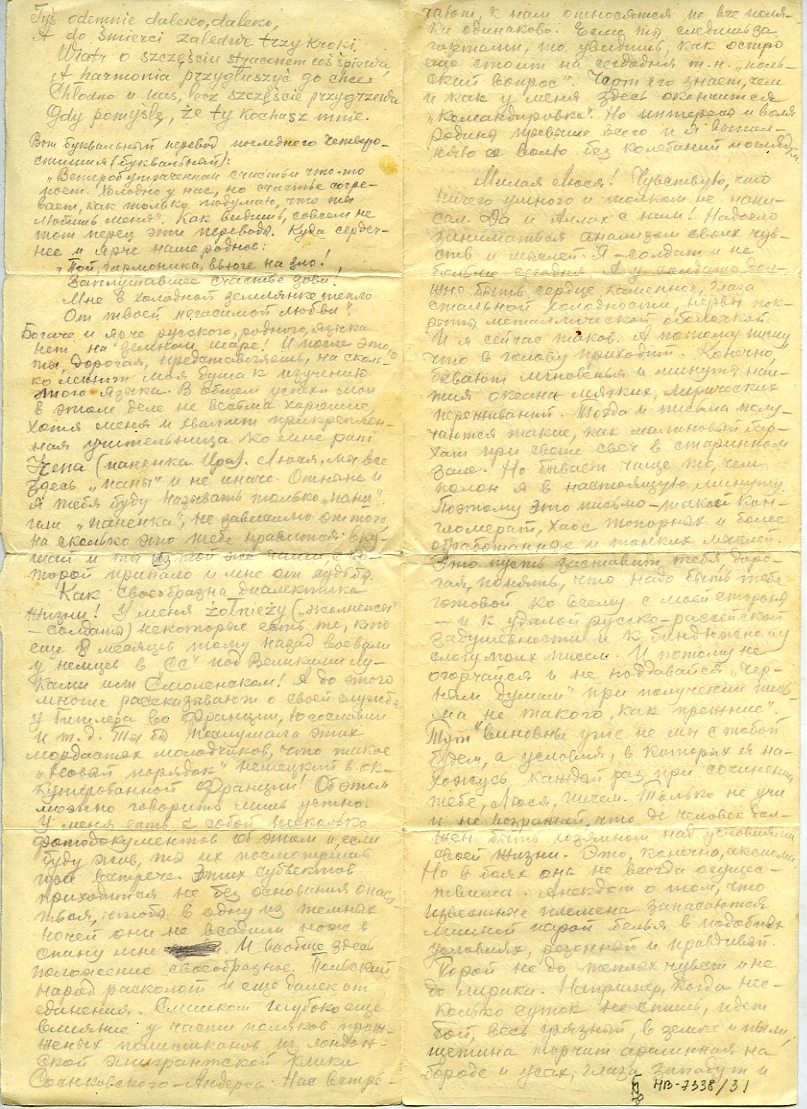 Tyś odemnie daleko, daleko,
A do śmierci zaledwie trzy kroki.
Wiatr o szczęściu straconem coś śpiewa,
A harmonia przygłuszyć go chce
Chłodno u nas, lecz szczęście przygrzewa
Gdy pomyślę, że ty kochasz mnie.
Вот буквальный перевод последнего четверо-
стишия (буквальный):
„Ветер об утраченном счастьи что-то
поет. Холодно у нас, но счастье согре-
вает, как только подумаю, что ты
любишь меня". Как видишь, совсем не
тот перец эти перевода. Куда сердеч-
нее и ярче наше родное:
„Пой, гармоника, вьюге на зло!
Заплутавшее счастье зови!
Мне в холодной землянке тепло
От твоей негасимой любви"
Богаче и ярче русского, родного языка
нет на земном шаре! И после этого
ты, дорогая, представляешь, на сколь-
ко лежит моя душа к изучению
этого языка. В общем успехи мои
в этом деле не весьма хорошие,
хотя меня и хвалит прикреплен-
ная учительница ко мне pani
(паненка Ира). Люся, мы все
здесь „паны" и не иначе. Отныне и
я тебя буду называть только „пани"
или „паненка", не зависимо от того
на сколько это тебе нравится: вку-
шай и ты из той же чаши, с ко-
торой припало и мне от судьбы.
Как своеобразна диалектика
жизни! У меня żołnieży („жолнежы"
– солдаты) некоторые есть те, кто
еще 8 месяцев тому назад воевали
у немцев в „СС" под Великими Лу-
ками или Смоленском! А до этого
многие рассказывают о своей службе
у Гитлера во Франции, Югославии
и т.д. Ты бы послушала этих
мордастых молодчиков, что такое
„новый порядок" немецкий в ок-
купированной Франции! Об этом
можно говорить лишь устно.
У меня есть с собой несколько
фотодокументов об этом и, если
буду жив, то их посмотришь
при встрече. Этих субъектов
приходится не без основания опаса-
ться, чтобы в одну из темных
ночей они не всадили нож в
спину мне. И вообще здесь
положение своеобразное. Польский
народ расколот и еще далек от
единения. Слишком глубоко еще
влияние у части поляков прож-
женых политиканов из лондон-
ской эмигрантской клики
Соснковского-Андерса. Нас встре-
чают, к нам относятся не все поля-
ки одинаково. Если ты следишь за
газетами, то увидишь, как остро
еще стоит на сегодня т.н. „поль-
ский вопрос". Черт его знает, чем
и как у меня здесь окончится
„командировка". Но интересы и воля
Родины превыше всего и я выпол-
няю ее волю без колебаний
Милая Люся! Чувствую, что
ничего умного и толком не напи-
сал. Да и Аллах с ним! Надоело
заниматься анализом своих чув-
ств и мыслей. Я – солдат и не
больше сегодня. А у солдата дол-
жно быть сердце каменное, глаза
стальной холодности, нервы пок-
рыты металлической оболочкой.
И я сейчас таков. А потому пишу,
что в голову приходит. Конечно,
бывают мгновенья и минуты наи-
тия океана мягких, лирических
переживаний. Тогда и письма полу-
чаются такие, как малиновый бар-
хат при свете свеч в старинном
зале. Но бывает чаще то, чем
полон я в настоящую минуту.
Поэтому это письмо – такой кон-
гломерат, хаос топорных и более
обработанных и тонких мыслей.
Это пусть заставит тебя, доро-
гая, понять, что надо быть тебе
готовой ко всему с моей стороны
– и к удалой русско-расейской
задушевности и к биндюжному
слогу моих писем. И потому не
огорчайся и не поддавайся „чер-
ным думам" при получении пись-
ма не такого, как прежние".
Тут виновны уже не мы с тобой
будем, а условия, в которых я на-
хожусь каждый раз при сочинении
тебе, Люся, писем. Только не учи
и не возражай, что де человек дол-
жен быть хозяином над условиями
своей жизни. Это, конечно, аксиома.
Но в боях она не всегда осущес-
твима. Анекдот о том, что
известные племена запасаются
лишней парой белья в подобных
условиях, резонный и правдивый.
Порой не до теплых чувств и не
до лирики. Например, когда нес-
колько суток не спишь, идет
бой, весь грязный, в земле и пыли,
щетина торчит аршинная на
бороде и усах, глаза западут и
НВ-7338/31